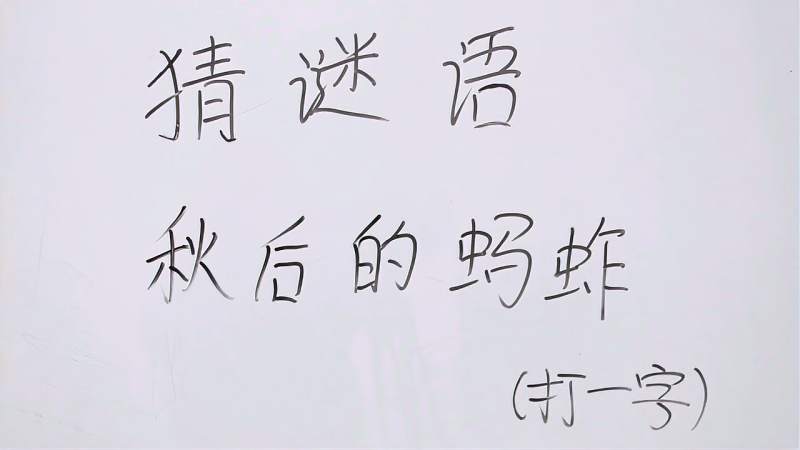 猜谜语
秋后的蚂蚱
(打一字)